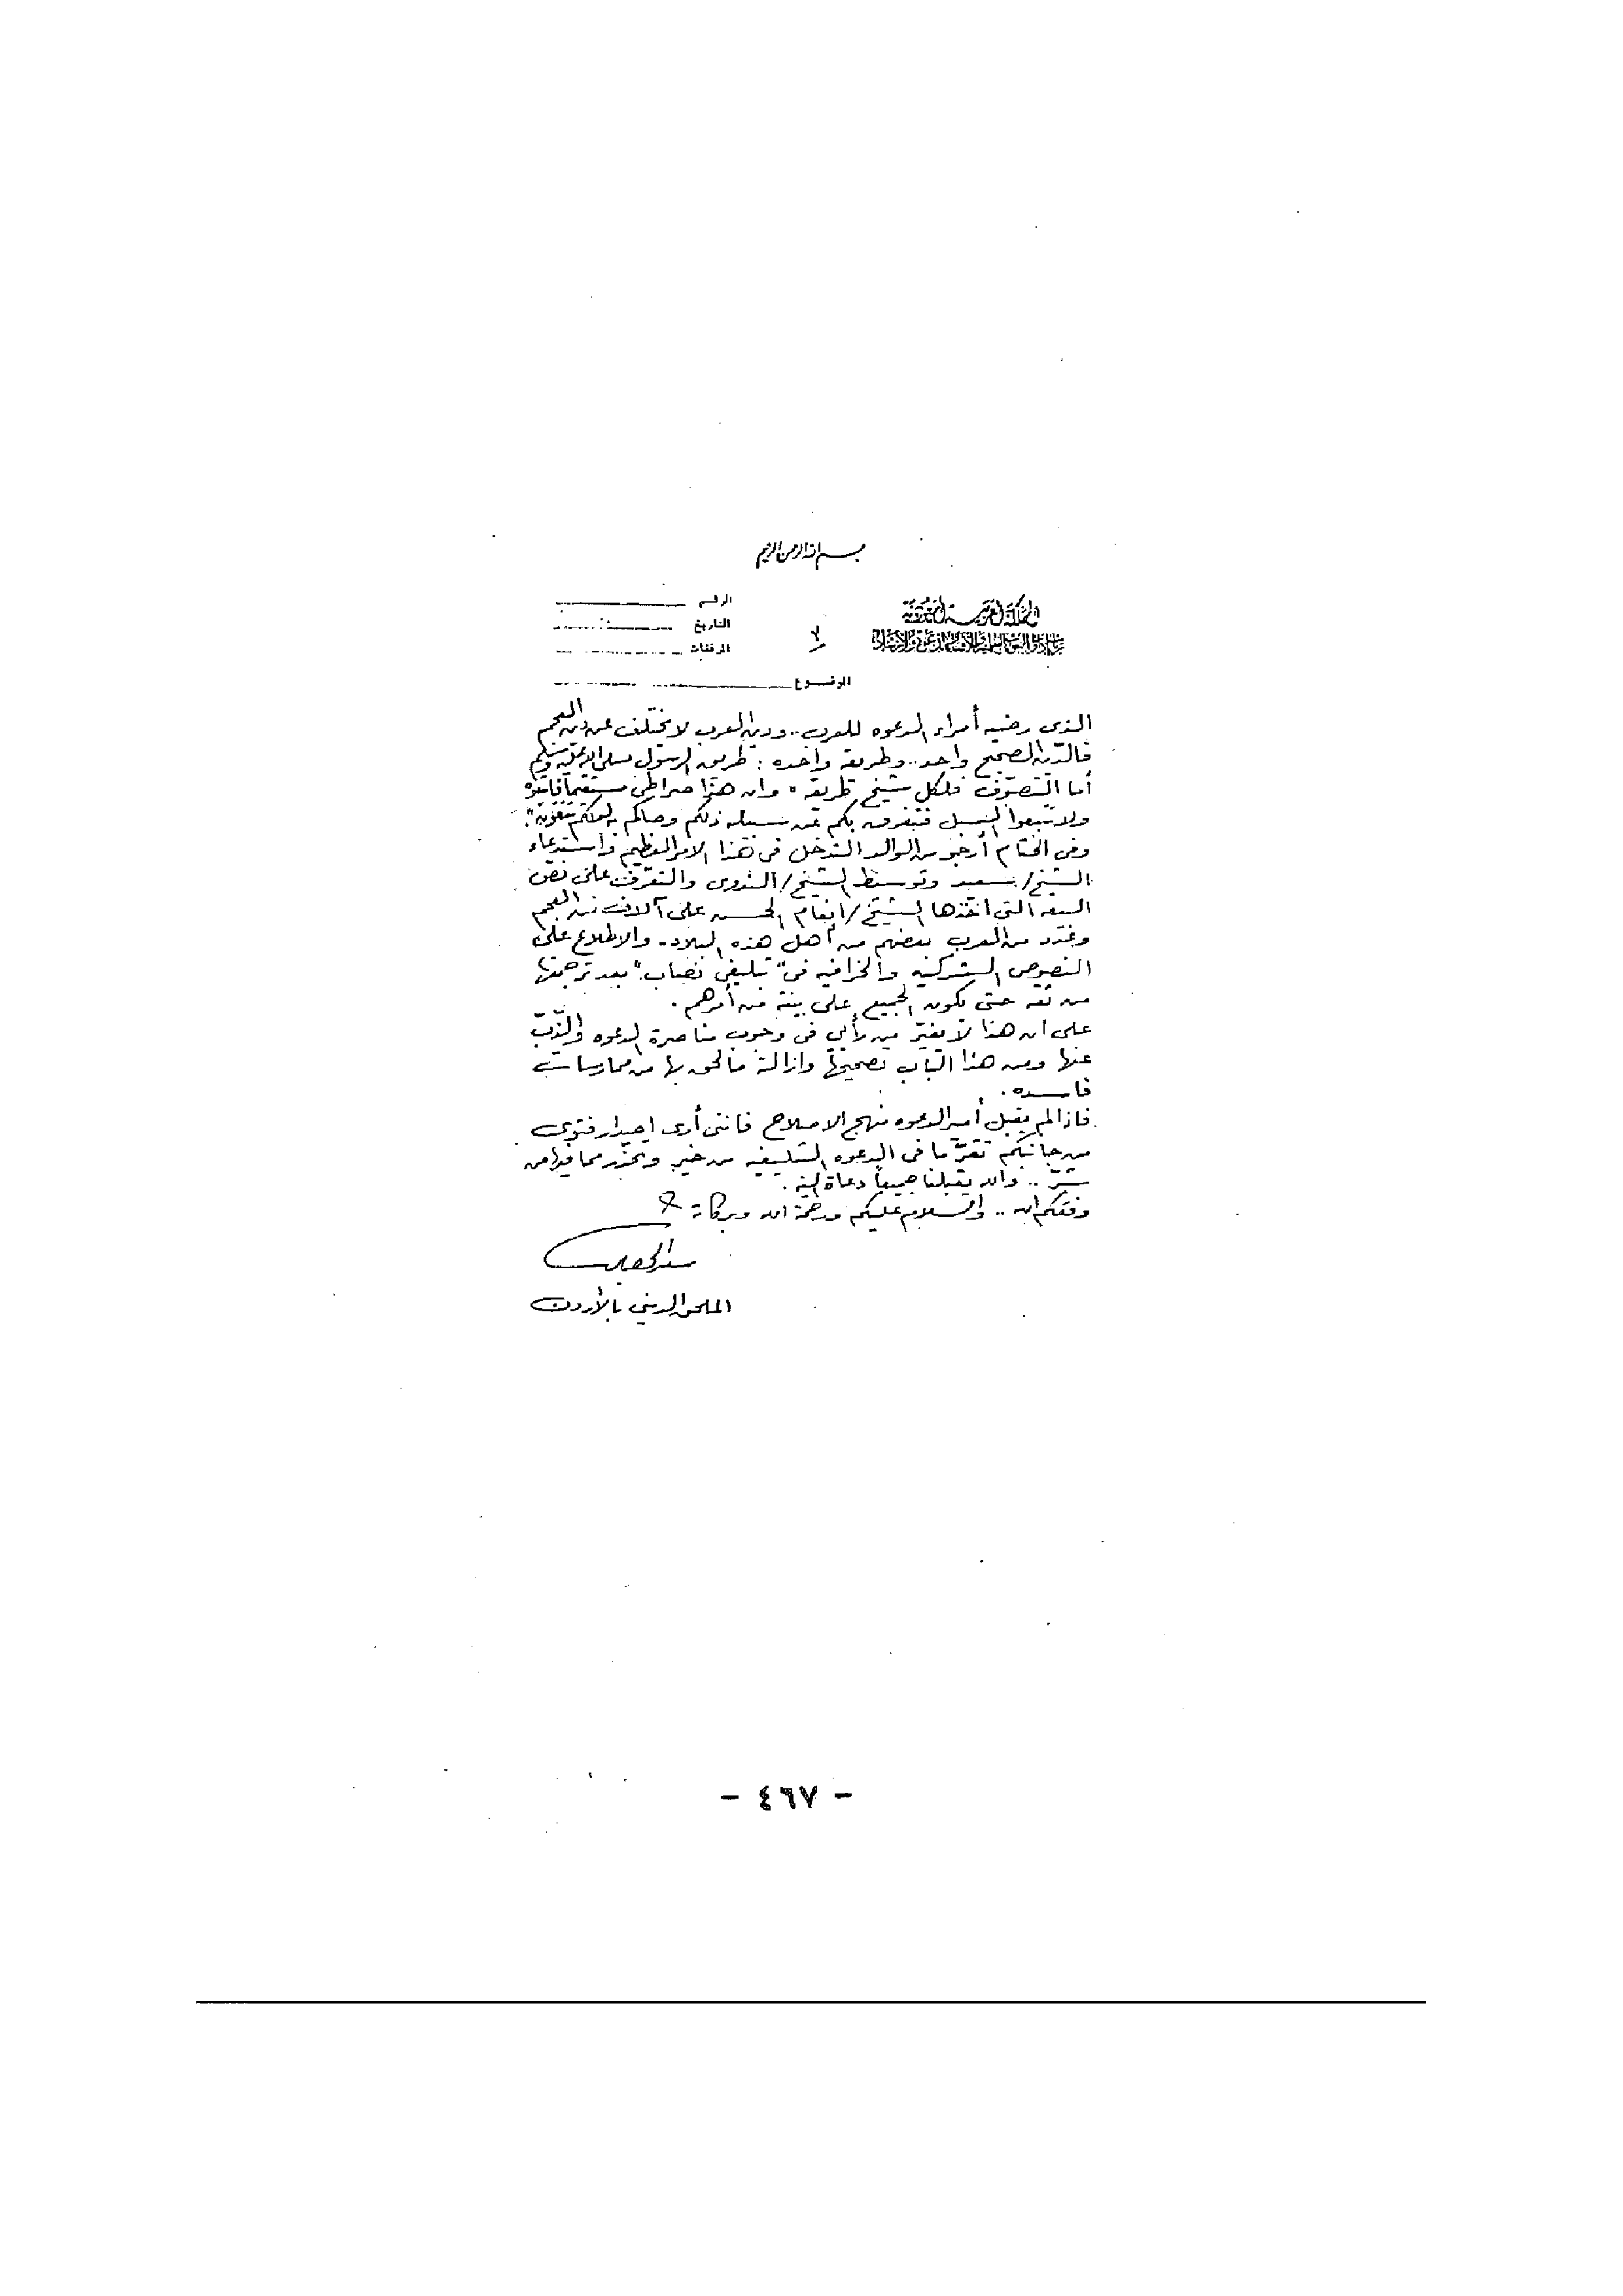 بسم الله الرحمن الرحيم
المملكة العربية السعودية
الرقم
إدارات البحوث العلمية والافتاء والدعوة والإرشاد
التاريخ
المرفقات
الموضوع
الذى رضيه أمراء الدعوه للعرب.. ودين العرب لا يختلف عن دين العجم
فالدّين الصحيح واحد.. وطريقه واحده: طريق الرسول صلى الله عليه وسلم
أما التصوّف فلكل شيخ طريقه "وان هذا صراطى مستقيماً فاتبعوه
ولا تتبعوا السبل فتفرق بكم عن سبيله ذلكم وصاكم به لعلكم تتقون".
وفى الختام أرجو من الوالد التدخل فى هذا الامر العظيم واستدعاء
الشيخ/سعيد وتوسيط الشيخ/الندوى والتعرّف على نص
البيعه التى اتخذها الشيخ/انعام الحسن على آلاف من العجم
وعدد من العرب بعضهم من أهل هذه البلاد. والاطلاع على
النصوص الشركيه والخرافيه فى "تبليغى نصاب" بعد ترجمتها
من ثقه حتى يكون الجميع على بينة من أمرهم.
على أن هذا لا يغيّر من رأيي فى وجوب مناصرة الدعوه والذّبّ
عنها ومن هذا الباب تصحيحها وازالة ما لحق بها من ممارسات
فاسده.
فاذا لم يقبل أمير الدعوه منهج الاصلاح فاننى أرى اصدار فتوى
من جانبكم تقرّ ما فى الدعوه التبليغيه من خير وتحذّر مما فيها من
شرّ.. والله يقبلنا جميعاً دعاة إليه.
وفقكم الله.. والسلام عليكم ورحمة الله وبركاته
سعد الحصين
الملحق الديني بالأردن
- ٤٦٧ -